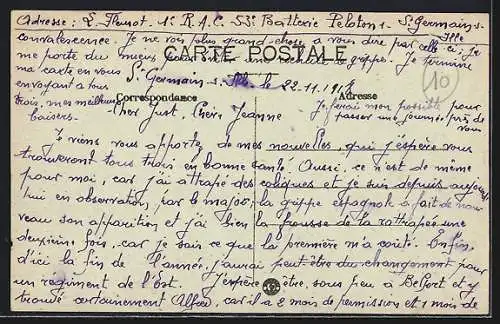 Adresse: L. Fleurot. 1e R.A.C. 53e Batterie Peloton 1 St Germain s. Ille
convalescence. Je ne vois plus grand chose à vous dire par celle ci; Je
me porte du mieux
CARTE POSTALE
grippe. Je termine
ma carte en vous
envoyant à tous
trois, mes meilleurs
baisers.
St Germain s. Ille le 22.11.191
10
Correspondance
Adresse
Je ferai mon possible pour
passer une journée près de
vous
Cher Just, Chère Jeanne
Je viens vous apporte de mes nouvelles, qui j'éspère vous
trouveront tous trois en bonne santé. Aussi, ce n'est de même
pour moi, car j'ai attrapé des coliques et je suis depuis aujourd'
hui en observation, par le major; la grippe espagnole a fait de nou
veau son apparition et j'ai bien la frousse de la rattraper une
deuxième fois, car je sais ce que la première m'a couté. Enfin,
d'ici la fin de l'année, j'aurai peut être du changement pour
un régiment de l'Est. J'éspère être, sous peu à Belfort et y
trouvé certainement Alfred, car il a 2 mois de permission et 1 mois de